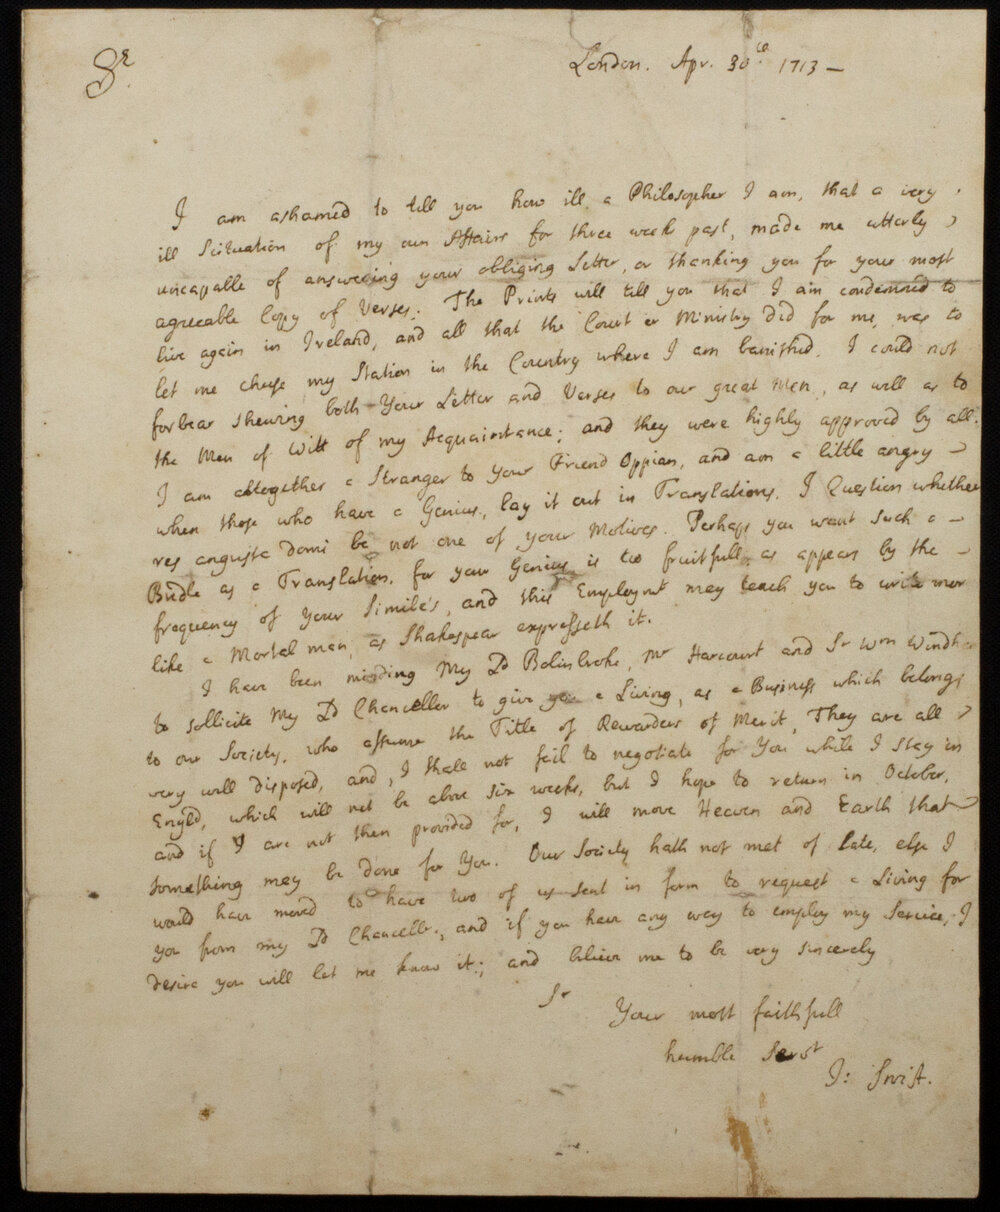 Sr
London. Apr. 30th 1713 —
I am ashamed to tell you how ill a Philosopher I am, that a very
ill Scituation of my own Affairs for three week past, made me utterly
uncapable of answering your obliging Letter, or thanking you for your most
agreeable Copy of Verses. The Prints will tell you that I am condemned to
live again in Ireland, and all that the Court or Ministry did for me, was to
let me chuse my Station in the Country where I am banished. I could not
forbear shewing both Your Letter and Verses to our great Men, as well as to
the Men of Witt of my Acquaintance; and they were highly approved by all.
I am altogether a Stranger to Your Friend Oppian, and am a little angry —
when those who have a Genius, lay it out in Translations. I Question whether
res angusta domi be not one of your Motives. Perhaps you want such a —
Bridle as a Translation, for your Genius is too fruitfull, as appears by the —
frequency of your Simile's, and this Employmt may teach you to write more
like a Mortal man, as Shakespear expresseth it.
I have been minding My Ld Bolinbroke, Mr Harcourt and Sr Wm Windh
to sollicite My Ld Chancellor to give you a Living, as a Business which belongs
to our Society, who assume the Title of Rewarders of Merit, They are all
very well disposed, and, I shall not fail to negotiate for You while I stay in
Engld, which will not be above six weeks, but I hope to return in October,
and if You are not then provided for, I will move Heaven and Earth that
something may be done for You. Our Society hath not met of late, else I
would have moved to have two of us sent in form to request a Living for
you from my Ld Chancellr, and if you have any way to employ my Service, I
desire you will let me know it; and believe me to be very sincerely
Sr
Your most faithfull
humble Servt
J: Swift.